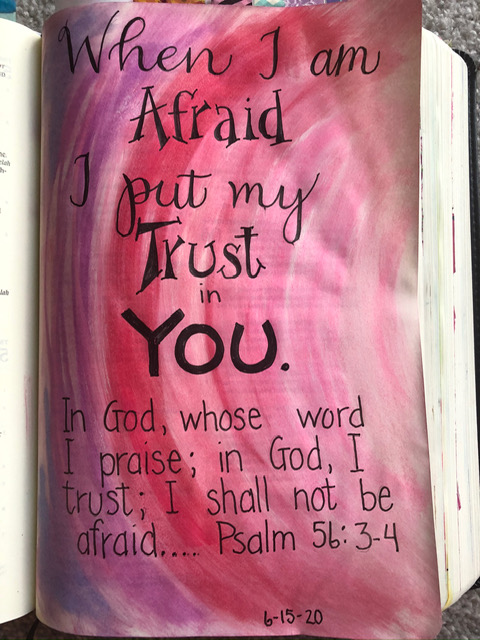 When I am
Afraid
I put my
Trust
in
YOU.
In God, whose word
I praise; in God, I
trust; I shall not be
afraid..... Psalm 56:3-4
6-15-20